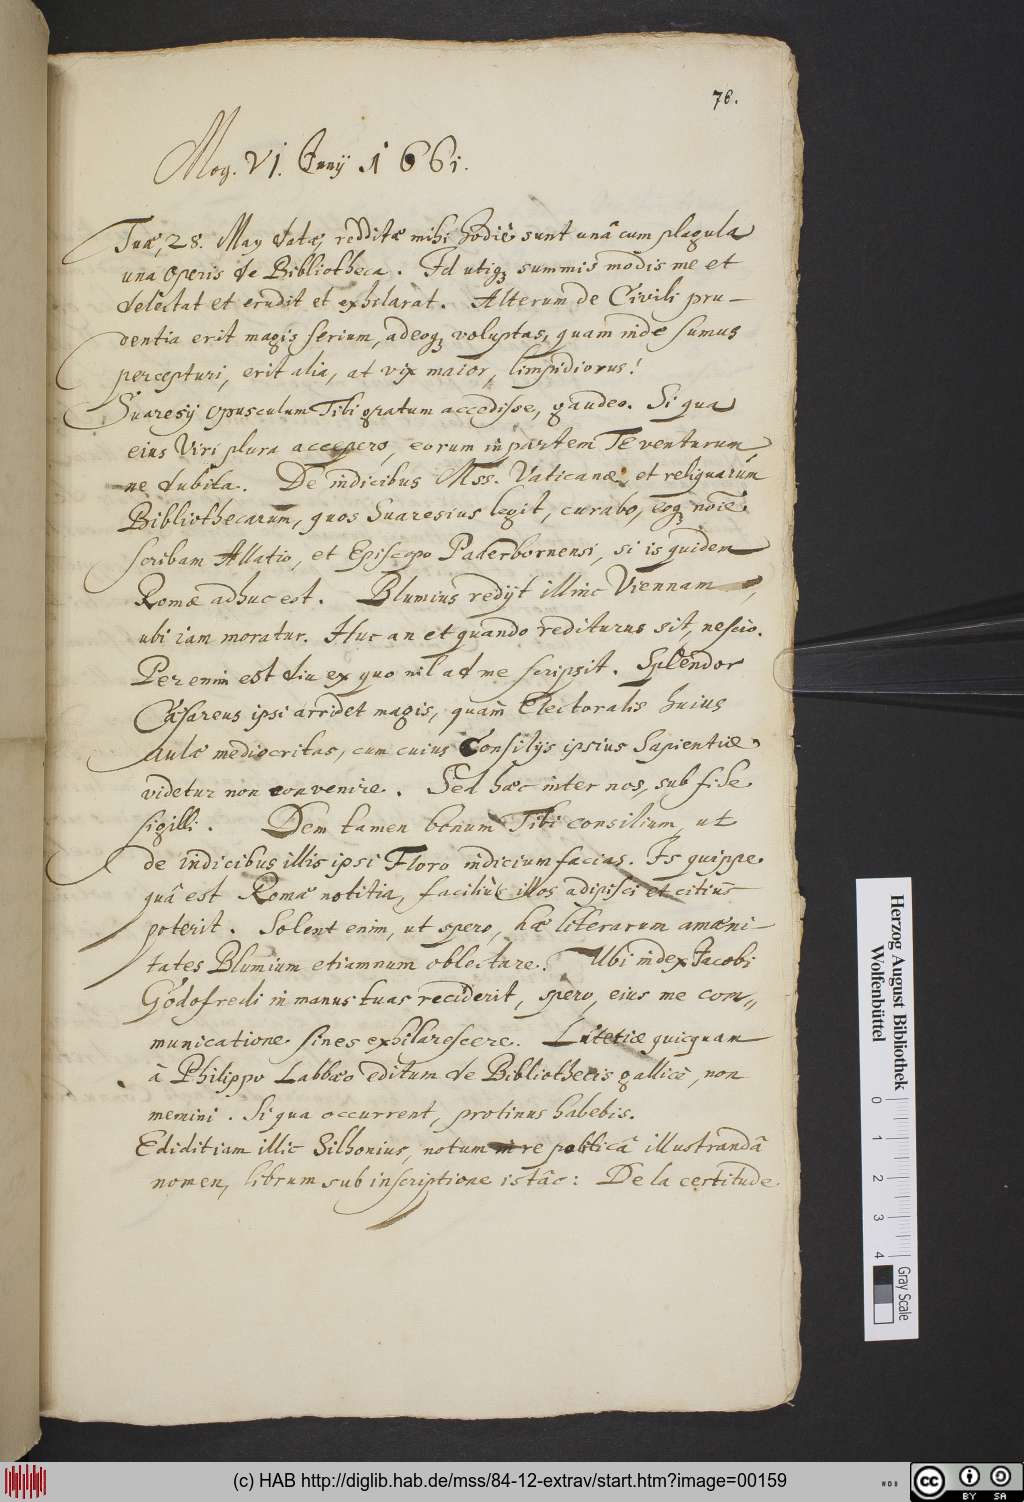 76.
Mog. VI. Junij 1661.
Tuæ, 28. May datæ, redditæ mihi hodiè sunt unâ cum plagula
una operis de Bibliotheca. Id utiq; summis modis me et
delectat et erudit et exhilarat. Alterum de Civili pru-
dentia erit magis serium, adeoq; voluptas, quam inde sumus
percepturi, erit alia, at vix maior, limpidiorus!
Suaresij opusculum Tibi gratum accedisse, gaudeo. Si qua
eius Viri plura accepero, eorum in partem Te venturum,
ne dubita. De indicibus Mss. Vaticanæ et reliquarum
Bibliothecarum, quos Suaresius legit, curabo, eoq; noīe
scribam Allatio, et Episcopo Paderbornensi, si is quidem
Romæ adhuc est. Blumius redijt illinc Viennam,
ubi iam moratur. Huc an et quando rediturus sit, nescio.
Per enim est diu ex quo nil ad me scripsit. Splendor
Cæsareus ipsi arridet magis, quam Electoralis huius
aulæ mediocritas, cum cuius Consilijs ipsius Sapientiæ
videtur non convenire. Sed hæc inter nos, sub fide
sigilli. Dem tamen bonum Tibi consilium, ut
de indicibus illis ipsi Floro indicium facias. Is quippe
quâ est Romæ notitia, faciliùs illos adipisci et citius
poterit. Solent enim, ut spero, hæ literarum amæni-
tates Blumium etiamnum oblectare. Ubi index Jacobi
Godofredi in manus tuas reciderit, spero, eius me com-
municatione sines exhilarescere. Lutetiæ quicquam
à Philippo Labbæo editum de Bibliothecis gallicè, non
memini. Si qua occurrent, protinus habebis.
Edidit iam illic Silhonius, notum in re publicâ illustrandâ
nomen, librum sub inscriptione istâc: De la certitude
Herzog August Bibliothek
Wolfenbüttel
0 1 2 3 4
Gray Scale
(c) HAB http://diglib.hab.de/mss/84-12-extrav/start.htm?image=00159
cc BY SA